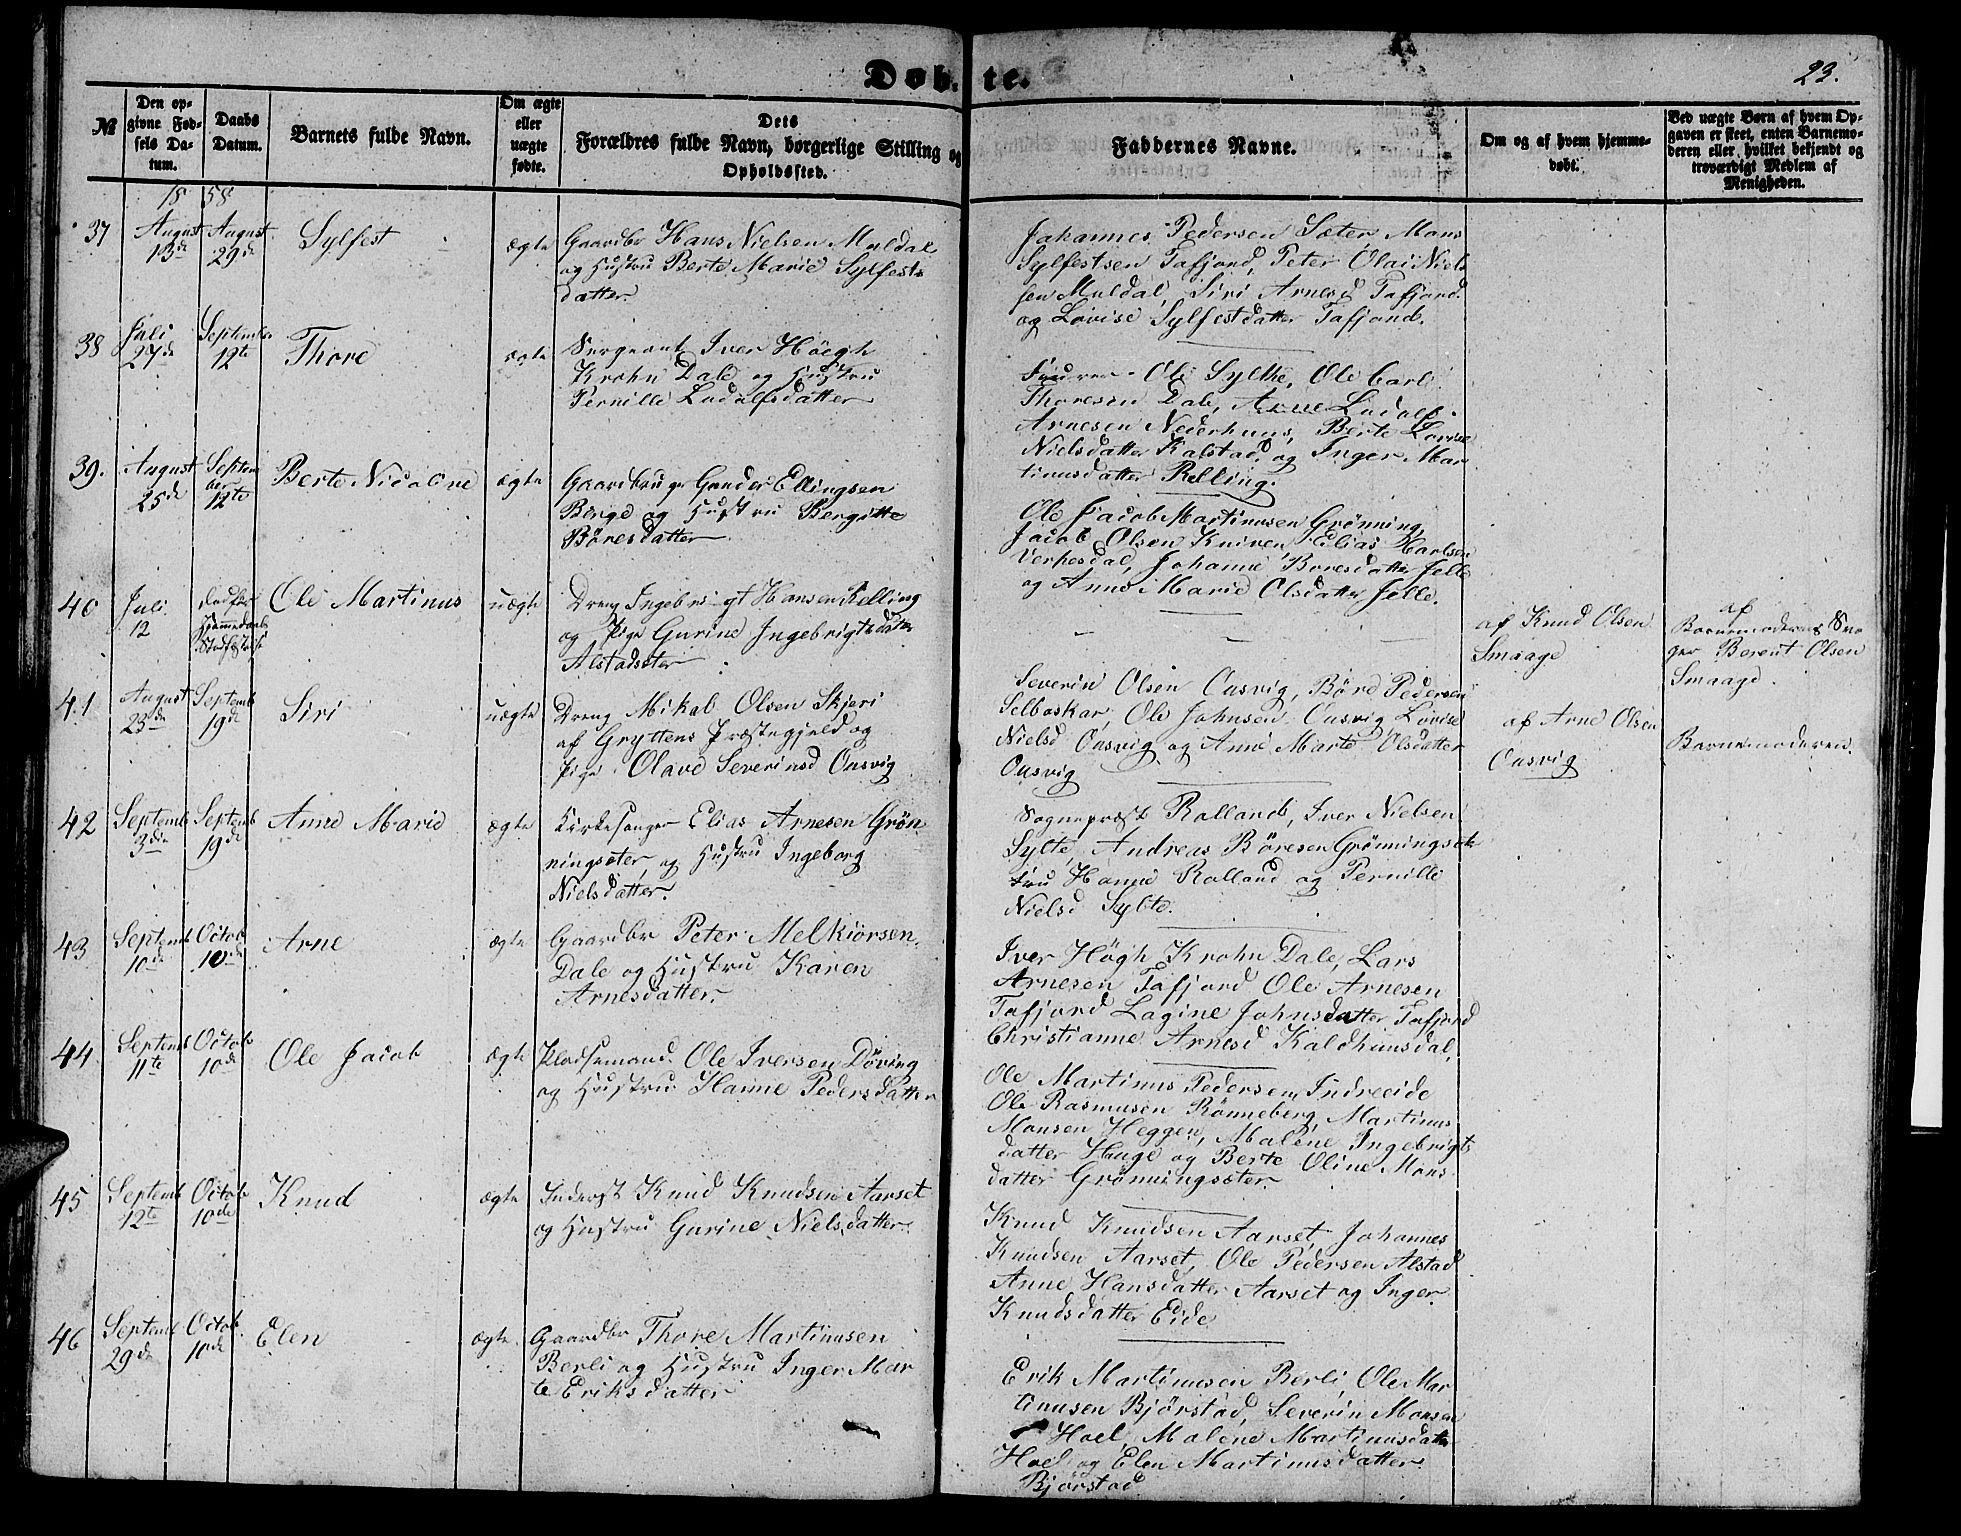 Døb- te.
23.
№
Den op-
givne Fød-
sels Da-
tum.
Daabs
Datum.
Barnets fulde Navn.
Om ægte
eller
uægte
fødte.
Dets
Forældres fulde Navn, borgerlige Stilling og
Opholdssted.
Faddernes Navne.
Om og af hvem hjemme-
døbt.
Ved uægte Børn af hvem Op-
gaven er skeet, enten Barnemo-
deren eller hvilket bekjendt og
troværdigt Medlem af
Menigheden.
1858
37
August
13de
August
29de
Sylfest
ægte
Gaardbr Hans Nielsen Muldal
og Hustru Berte Marie Sylfests
datter.
Johannes Pedersen Sæter Mons
Sylfestsen Tafjord, Peter Olai Niel
sen Muldal, Siri Arnesd Tafjord
og Lovise Sylfestdatter Tafjord.
38
Juli
27de
September
12te
Thore
ægte
Sergeant Iver Höegh
Krohn Dale og Hustru
Pernille Ludolfsdatter
Ole Sylthe, Ole Carl
Thoresen Dale, Arne Ludolf
Arnesen Nederhuus, Berte Lovise
Nielsdatter Kalstad og Inger Mar
tinusdatter Relling.
39.
August
25de
Septem
ber
12te
Berte Nicoline
ægte
Gaardbruger Gunder Ellingsen
Berge og Hustru Bergitte
Böresdatter
Ole Jacob Martinusen Grönning
Jacob Olsen Kniven Elias Karlsen
Verpesdal, Johanne Boresdatter Jelle
og Anne Marie Olsdatter Jelle.
40
Juli
12
död før
Hjemmedaabs
Stadfæstelse
Ole Martinus
uægte
Dreng Ingebrigt Hansen Relling
og Pige Gurine Ingebrigtsdatter
Alstadsæter
af Knud Olsen
Smaage
af
Barnemoderens Sva
ger Berent Olsen
Smaage.
41
August
23de
Septemb
19de
Siri
uægte
Dreng Mikal Olsen Skjeri
af Gryttens Præstegjeld og
Pige Olave Severinsd Onsvig
Severin Olsen Onsvig, Börd Pedersen
Selboskar, Ole Johnsen Onsvig Lovise
Nielsd Onsvig og Anne Marte Olsdatter
Onsvig
af Arne Olsen
Onsvig
Barnemoderen.
42
Septemb
3die
Septemb
19de
Anne Marie
ægte
Kirkesanger Elias Arnesen Grön
ningsæter og Hustru Ingeborg
Nielsdatter.
Sognepræst Rolland, Iver Nielsen
Sylte, Andreas Böresen Grönningsæt
fru Hanne Rolland og Pernille
Nielsd Sylte.
43
Septemb
10de
Octob
10de
Arne
ægte
Gaardbr Peter Melkiorsen
Dale og Hustru Karen
Arnesdatter.
Iver Högh Krohn Dale, Lars
Arnesen Tafjord Ole Arnesen
Tafjord Lagine Johnsdatter Tafjord
Christianne Arnesd Kaldhuusdal.
44
Septemb
11te
Octob
10de
Ole Jacob
ægte
Pladsemand Ole Iversen Döving
og Hustru Hanne Pedersdatter
Ole Martinus Pedersen Indreeide
Ole Rasmusen Rönneberg, Martinus
Monsen Heggen, Malene Ingebrigts
datter Hauge og Berte Oline Mons
datter Grönningsæter
45
Septemb
12te
Octob
10de
Knud
ægte
Inderst Knud Knudsen Aarset
og Hustru Gurine Nielsdatter.
Knud Knudsen Aarset, Johannes
Knudsen Aarset, Ole Pedersen Alstad
Anne Hansdatter Aarset og Inger
Knudsdatter Eide
46
Septemb
29de
Octob.
10de
Elen
ægte
Gaardbr Thore Martinusen
Berli og Hustru Inger Mar
te Eriksdatter
Erik Martinusen Berli, Ole Mar
tinusen Bjørstad, Severin Monsen
Hoel, Malene Martinusdatter
Hoel og Elen Martinusdatter
Bjørstad